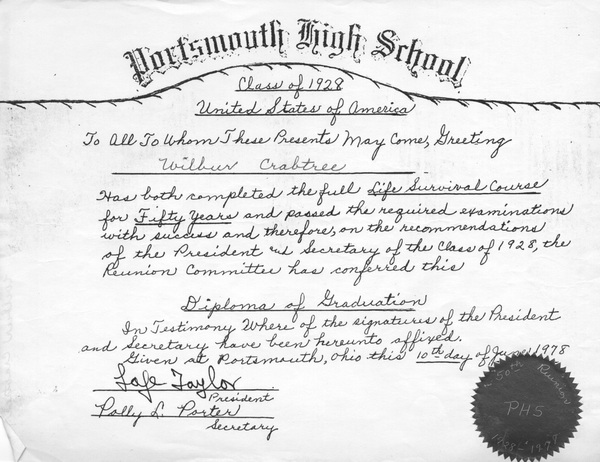 Portsmouth High School
Class of 1928
United States of America
To All To Whom These Presents May Come, Greeting
Wilbur Crabtree
Has both completed the full Life Survival Course
for Fifty Years and passed the required examinations
with success and therefore, on the recommendations
of the President and Secretary of the Class of 1928, the
Reunion Committee has conferred this
Diploma of Graduation
In Testimony Where of the signatures of the President
and Secretary have been hereunto affixed.
Given at Portsmouth, Ohio this 10th day of June 1978
Lafe Taylor
President
Polly L. Porter
Secretary
50th Reunion
PHS
1928-1978